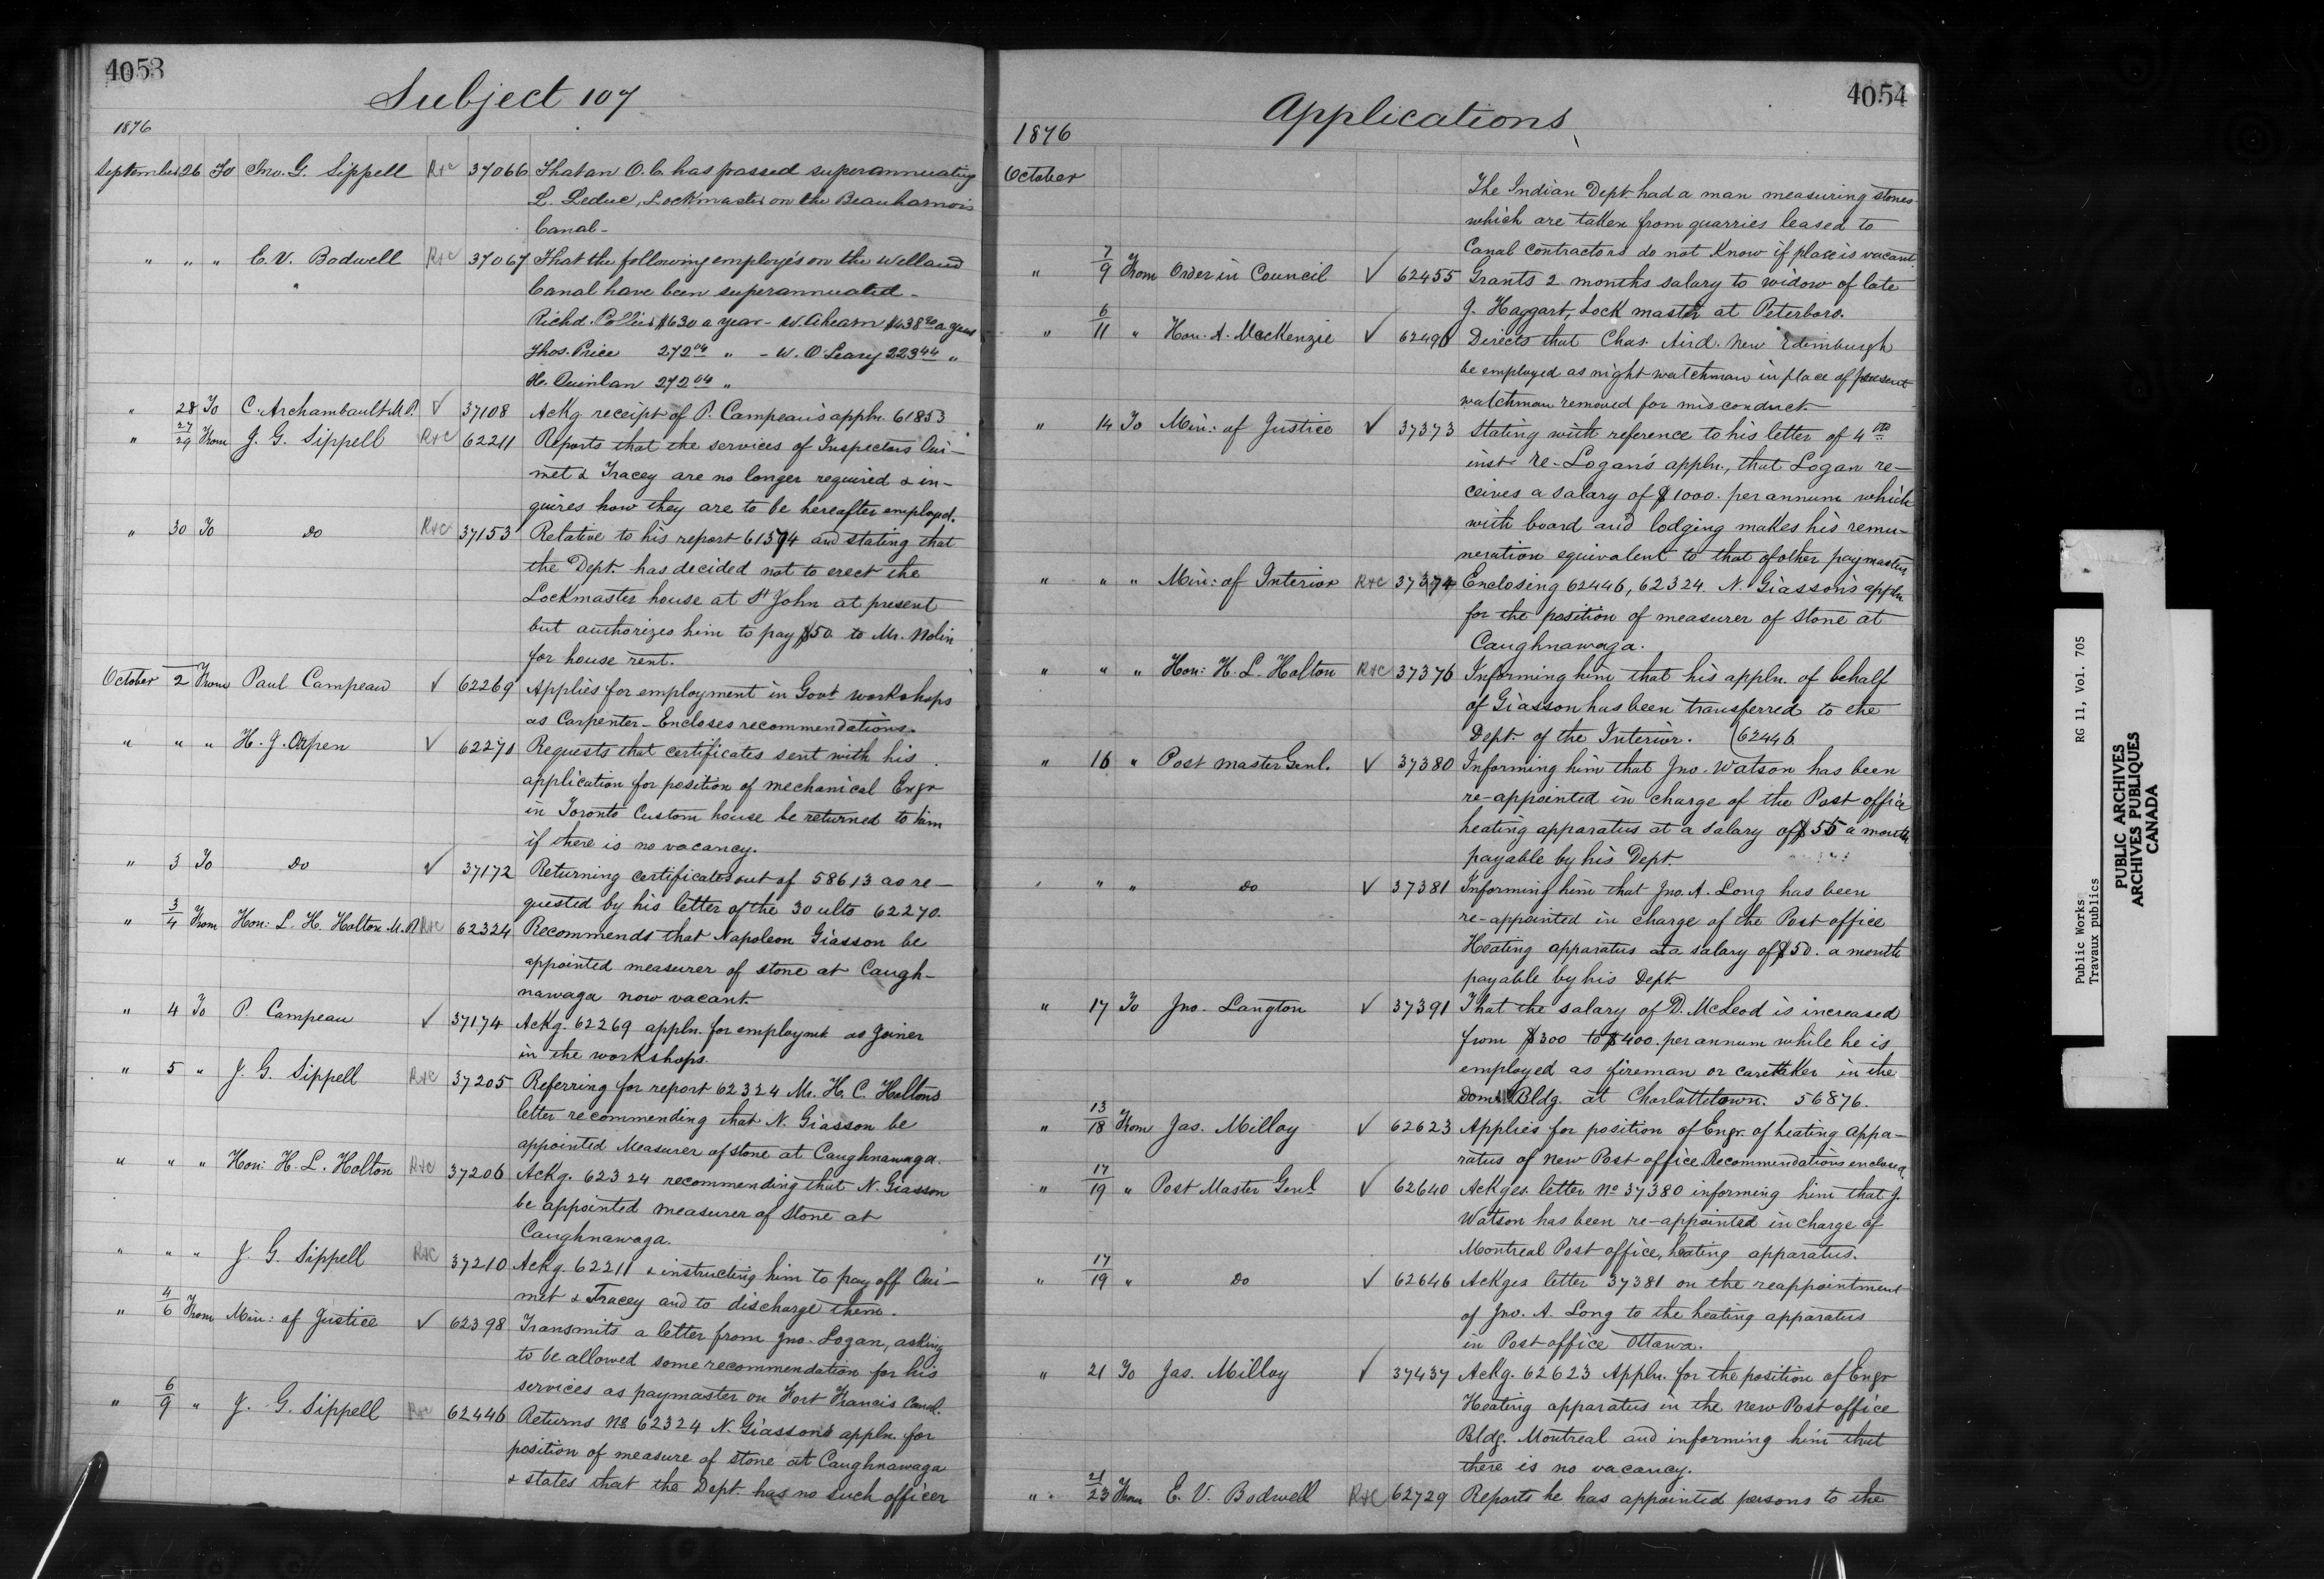 4053
Subject 107
1876
September 26 To Jno. G. Sippell R&C 37066 That an O.C. has passed superannuating
L. Leduc, Lockmaster on the Beauharnois
Canal -
" " " E. V. Bodwell R&C 37067 That the following employés on the Welland
Canal have been superannuated -
Richd. Collier $630 a year - W. Ahearn $438 a year
Thos. Price 272 04 " - W. O'Leary 223 44 "
H. Quinlan 272 04 "
" 28 To C. Archambault M.P. ✓ 37108 Ackg. receipt of P. Campeau's appln. 61853
" 27/29 From J. G. Sippell R&C 62211 Reports that the services of Inspectors Oui-
met & Tracey are no longer required & in-
quires how they are to be hereafter employed.
" 30 To do R&C 37153 Relative to his report 61594 and stating that
the Dept. has decided not to erect the
Lockmaster house at St John at present
but authorizes him to pay $50 to Mr. Nolin
for house rent.
October 2 From Paul Campeau ✓ 62269 Applies for employment in Govt workshops
as Carpenter - Encloses recommendations.
" " " H. J. Orpen ✓ 62270 Requests that certificates sent with his
application for position of mechanical Engr
in Toronto Custom house be returned to him
if there is no vacancy.
" 3 To do ✓ 37172 Returning certificates out of 58613 as re-
quested by his letter of the 30 ulto 62270.
" 3/4 From Hon: L. H. Holton M.P. R&C 62324 Recommends that Napoleon Giasson be
appointed measurer of stone at Caugh-
nawaga now vacant.
" 4 To P. Campeau ✓ 37174 Ackg. 62269 appln. for employmt as joiner
in the workshops.
" 5 " J. G. Sippell R&C 37205 Referring for report 62324 Mr. H. C. Holtons
letter recommending that N. Giasson be
appointed Measurer of stone at Caughnawaga.
" " " Hon: H. L. Holton R&C 37206 Ackg. 62324 recommending that N. Giasson
be appointed measurer of stone at
Caughnawaga.
" " " J. G. Sippell R&C 37210 Ackg. 62211 & instructing him to pay off Oui-
met & Tracey and to discharge them.
" 4/6 From Min: of Justice ✓ 62398 Transmits a letter from Jno. Logan, asking
to be allowed some recommendation for his
services as paymaster on Fort Francis Canal.
" 6/9 " J. G. Sippell R&C 62446 Returns No 62324 N. Giasson's appln. for
position of measure of stone at Caughnawaga
& states that the Dept. has no such officer
4054
Applications
1876
October
The Indian Dept. had a man measuring stones
which are taken from quarries leased to
Canal contractors do not know if place is vacant
" 7/9 From Order in Council ✓ 62455 Grants 2 months salary to widow of late
J. Haggart, Lock master at Peterboro.
" 6/11 " Hon. A. MacKenzie ✓ 62490 Directs that Chas. Aird. New Edinburgh
be employed as night watchman in place of present
watchman removed for misconduct.
" 14 To Min: of Justice ✓ 37373 Stating with reference to his letter of 4th
inst re-Logan's appln., that Logan re-
ceives a salary of $1000. per annum which
with board and lodging makes his remu-
neration equivalent to that of other paymasters
" " " Min: of Interior R&C 37374 Enclosing 62446, 62324. N. Giasson's appln
for the position of measurer of stone at
Caughnawaga.
" " " Hon: H. L. Holton R&C 37376 Informing him that his appln. of behalf
of Giasson has been transferred to the
Dept. of the Interior. (62446
" 16 " Post master Genl. ✓ 37380 Informing him that Jno. Watson has been
re-appointed in charge of the Post office
heating apparatus at a salary of $55 a month
payable by his Dept
" " " do ✓ 37381 Informing him that Jno. A. Long has been
re-appointed in charge of the Post office
Heating apparatus at a salary of $50. a month
payable by his Dept.
" 17 To Jno. Langton ✓ 37391 That the salary of D. McLeod is increased
from $300 to $400. per annum while he is
employed as fireman or caretaker in the
Domn Bldg. at Charlottetown. 56876.
" 13/18 From Jas. Milloy ✓ 62623 Applies for position of Engr. of heating appa-
ratus of new Post office. Recommendations enclosed.
" 17/19 " Post Master Genl ✓ 62640 Ackges. letter No 37380 informing him that J.
Watson has been re-appointed in charge of
Montreal Post office, heating apparatus.
" 17/19 " do ✓ 62646 Ackges letter 37381 on the reappointment
of Jno. A. Long to the heating apparatus
in Post office Ottawa.
" 21 To Jas. Milloy ✓ 37437 Ackg. 62623 Appln. for the position of Engr
Heating apparatus in the new Post office
Bldg. Montreal and informing him that
there is no vacancy.
" 21/23 From E. V. Bodwell R&C 62729 Reports he has appointed persons to the
Public Works RG 11, Vol. 705
Travaux publics
PUBLIC ARCHIVES
ARCHIVES PUBLIQUES
CANADA